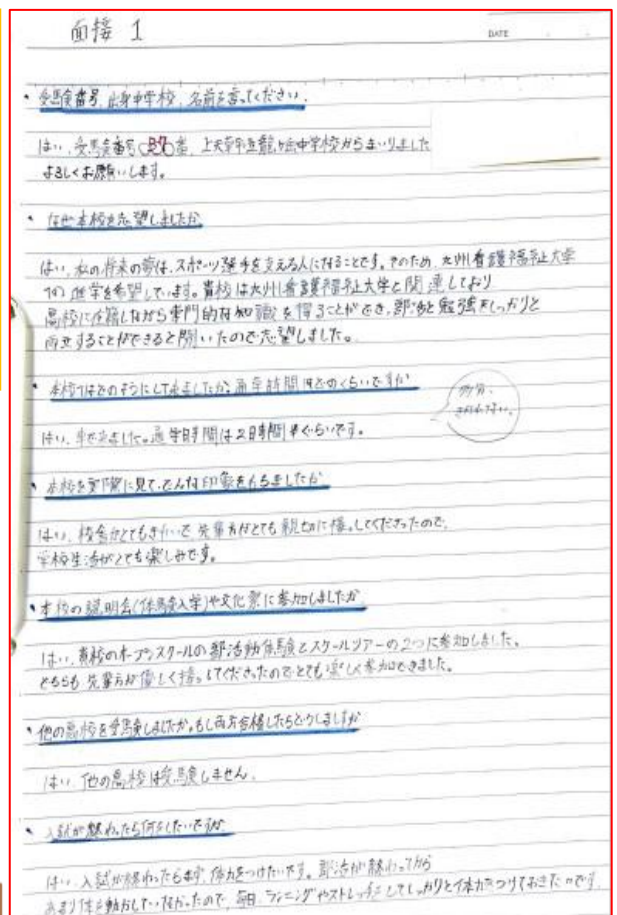 面接 1
DATE
・受験番号、出身中学校、名前を言ってください。
はい、受験番号 番、上天草市立龍ヶ岳中学校からまいりました
よろしくお願いします。
・なぜ本校を志望しましたか
はい、私の将来の夢は、スポーツ選手を支える人になることです。そのため、九州看護福祉大学
への進学を希望しています。貴校は九州看護福祉大学と関連しており
高校に在籍しながら専門的な知識を得ることができ、部活と勉強をしっかりと
両立することができると聞いたので志望しました。
・本校まではどのようにして来ましたか。通学時間はどのくらいですか
多分、
きかれない。
はい、車で来ました。通学時間は2時間半くらいです。
・本校を実際に見て、どんな印象をもちましたか
はい、校舎がとてもきれいで、先輩方がとても親切に接してくださったので、
学校生活がとても楽しみです。
・本校の説明会(体験入学)や文化祭に参加しましたか
はい、貴校のオープンスクールの部活動体験とスクールツアーの2つに参加しました。
どちらも先輩方が優しく接してくださったのでとても楽しく参加できました。
・他の高校を受験しましたか。もし両方合格したらどうしますか
はい、他の高校は受験しません。
・入試が終わったら何をしたいですか
はい、入試が終わったらまず、体力をつけたいです。部活が終わってから
あまり体を動かしていなかったので、毎日、ランニングやストレッチをしてしっかりと体力をつけておきたいです